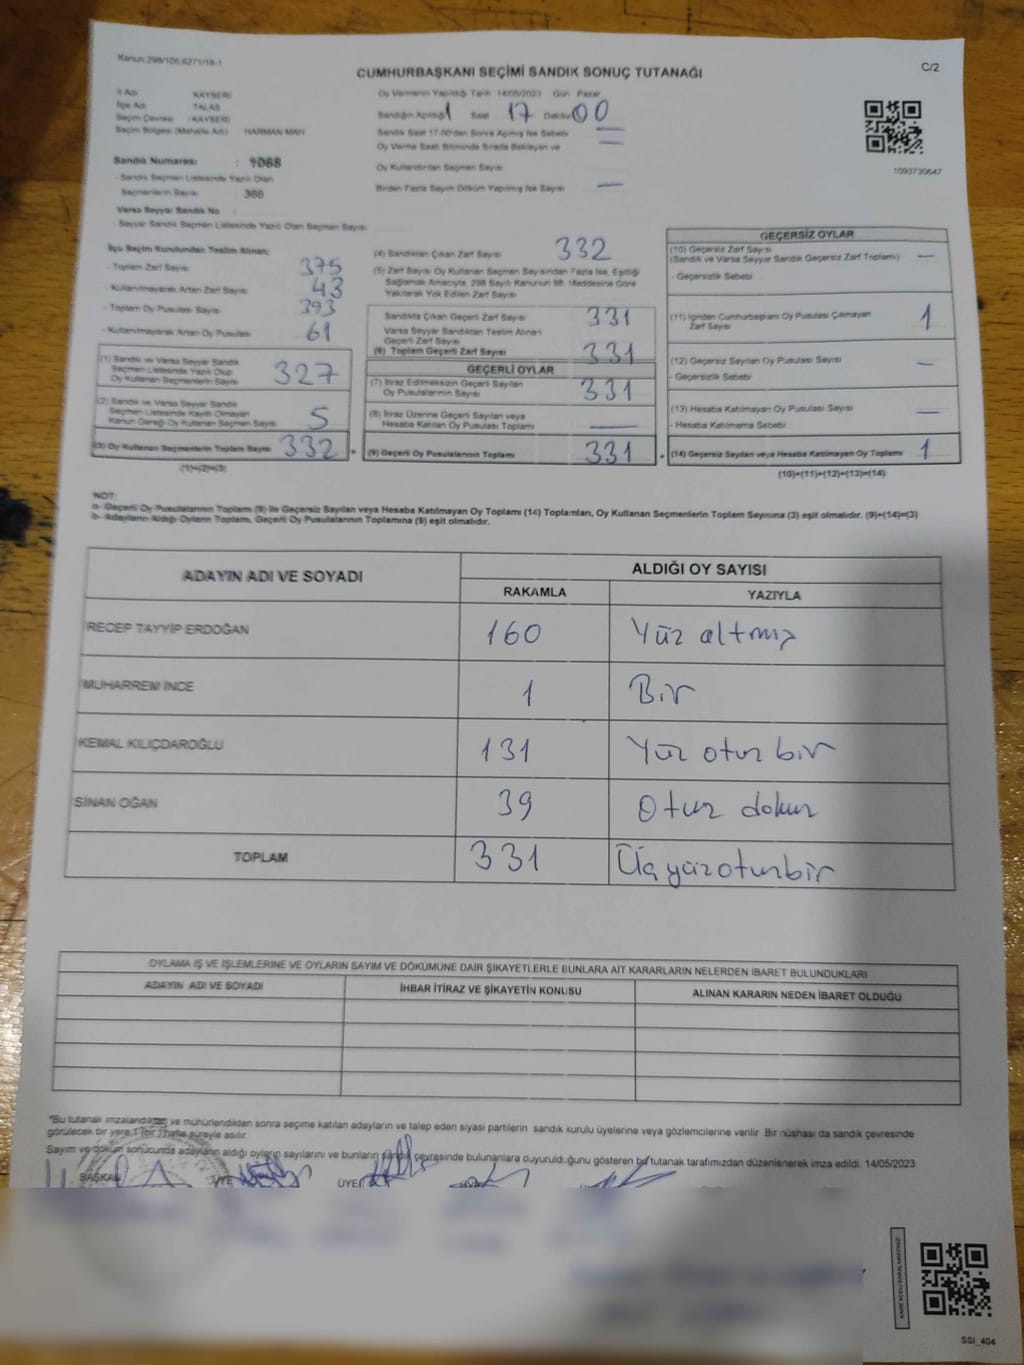 Kanun:298/105,6271/18-1
CUMHURBAŞKANI SEÇİMİ SANDIK SONUÇ TUTANAĞI
C/2
İl Adı KAYSERİ
İlçe Adı TALAS
Seçim Çevresi : KAYSERİ
Seçim Bölgesi (Mahalle Adı) : HARMAN MAH
Sandık Numarası : 1068
- Sandık Seçmen Listesinde Yazılı Olan
Seçmenlerin Sayısı : 366
Varsa Seyyar Sandık No :
- Seyyar Sandık Seçmen Listesinde Yazılı Olan Seçmen Sayısı
Oy Vermenin Yapıldığı Tarih 14/05/2023 Gün Pazar
Sandığın Açıldığı Saat 17 Dakika 00
Sandık Saat 17.00'den Sonra Açılmış İse Sebebi —
Oy Verme Saati Bitiminde Sırada Bekleyen ve —
Oy Kullandırılan Seçmen Sayısı
Birden Fazla Sayım Döküm Yapılmış İse Sayısı —
1093730647
İlçe Seçim Kurulundan Teslim Alınan;
- Toplam Zarf Sayısı 375
- Kullanılmayarak Artan Zarf Sayısı 43
- Toplam Oy Pusulası Sayısı 393
- Kullanılmayarak Artan Oy Pusulası 61
(1) Sandık ve Varsa Seyyar Sandık
Seçmen Listesinde Yazılı Olup
Oy Kullanan Seçmenlerin Sayısı 327
(2) Sandık ve Varsa Seyyar Sandık
Seçmen Listesinde Kayıtlı Olmayan
Kanun Gereği Oy Kullanan Seçmen Sayısı 5
(3) Oy Kullanan Seçmenlerin Toplam Sayısı 332 =
(1)+(2)=(3)
(4) Sandıktan Çıkan Zarf Sayısı 332
(5) Zarf Sayısı Oy Kullanan Seçmen Sayısından Fazla İse, Eşitliği
Sağlamak Amacıyla, 298 Sayılı Kanunun 98. Maddesine Göre
Yakılarak Yok Edilen Zarf Sayısı
Sandıkta Çıkan Geçerli Zarf Sayısı 331
Varsa Seyyar Sandıktan Teslim Alınan
Geçerli Zarf Sayısı
(6) Toplam Geçerli Zarf Sayısı 331
GEÇERLİ OYLAR
(7) İtiraz Edilmeksizin Geçerli Sayılan
Oy Pusulalarının Sayısı 331
(8) İtiraz Üzerine Geçerli Sayılan veya
Hesaba Katılan Oy Pusulası Toplamı —
(9) Geçerli Oy Pusulalarının Toplamı 331 +
GEÇERSİZ OYLAR
(10) Geçersiz Zarf Sayısı
(Sandık ve Varsa Seyyar Sandık Geçersiz Zarf Toplamı) —
- Geçersizlik Sebebi
(11) İçinden Cumhurbaşkanı Oy Pusulası Çıkmayan
Zarf Sayısı 1
(12) Geçersiz Sayılan Oy Pusulası Sayısı —
- Geçersizlik Sebebi
(13) Hesaba Katılmayan Oy Pusulası Sayısı —
- Hesaba Katılmama Sebebi
(14) Geçersiz Sayılan veya Hesaba Katılmayan Oy Toplamı 1
(10)+(11)+(12)+(13)=(14)
NOT:
a- Geçerli Oy Pusulasının Toplam (9) ile Geçersiz Sayılan veya Hesaba Katılmayan Oy Toplamı (14) Toplamları, Oy Kullanan Seçmenlerin Toplam Sayısına (3) eşit olmalıdır. (9)+(14)=(3)
b- Adayların Aldığı Oyların Toplamı, Geçerli Oy Pusulalarının Toplamına (9) eşit olmalıdır.
ADAYIN ADI VE SOYADI
ALDIĞI OY SAYISI
RAKAMLA YAZIYLA
RECEP TAYYİP ERDOĞAN 160 Yüz altmış
MUHARREM İNCE 1 Bir
KEMAL KILIÇDAROĞLU 131 Yüz otuz bir
SİNAN OĞAN 39 Otuz dokuz
TOPLAM 331 Üç yüz otuz bir
OYLAMA İŞ VE İŞLEMLERİNE VE OYLARIN SAYIM VE DÖKÜMÜNE DAİR ŞİKAYETLERLE BUNLARA AİT KARARLARIN NELERDEN İBARET BULUNDUKLARI
ADAYIN ADI VE SOYADI İHBAR İTİRAZ VE ŞİKAYETİN KONUSU ALINAN KARARIN NEDEN İBARET OLDUĞU
*Bu tutanak imzalandıktan ve mühürlendikten sonra seçime katılan adayların ve talep eden siyasi partilerin sandık kurulu üyelerine veya gözlemcilerine verilir. Bir nüshası da sandık çevresinde
görülecek bir yere 1 (bir) hafta süreyle asılır.
Sayım ve döküm sonucunda adayların aldığı oyların sayılarını ve bunların sandık çevresinde bulunanlara duyurulduğunu gösteren bu tutanak tarafımızdan düzenlenerek imza edildi. 14/05/2023
BAŞKAN ÜYE ÜYE
SSI_404